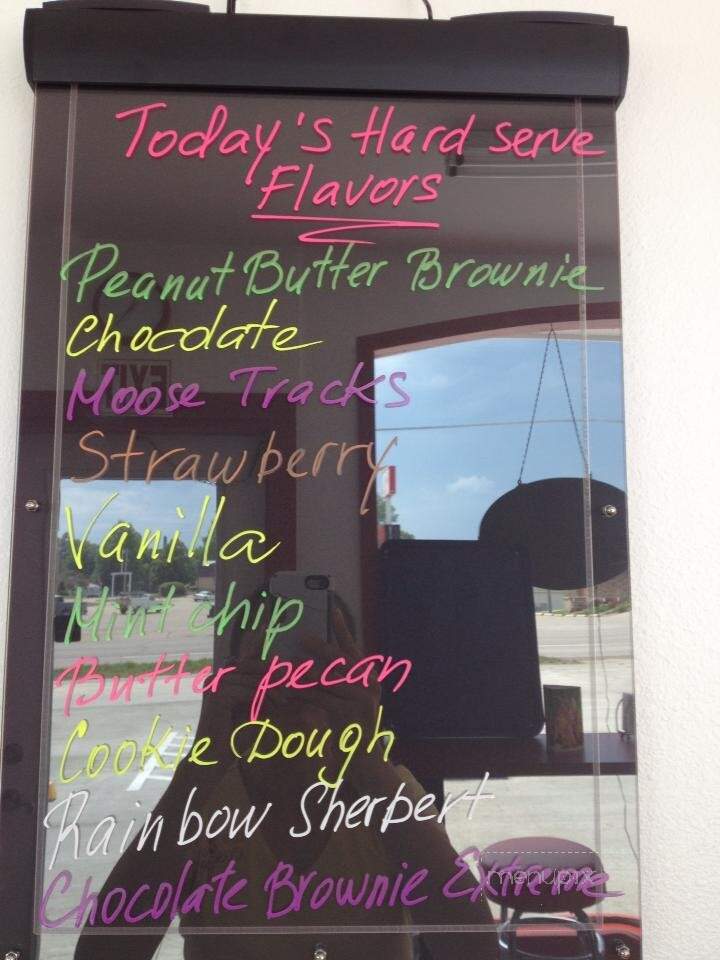 Today's Hard serve
Flavors
Peanut Butter Brownie
Chocolate
Moose Tracks
Strawberry
Vanilla
Mint chip
Butter pecan
Cookie Dough
Rainbow Sherpert
Chocolate Brownie Extreme
menupix